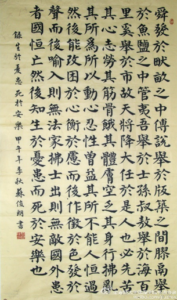 舜發於畎畝之中傅說舉於版築之間膠鬲舉
於魚鹽之中管夷吾舉於士孫叔敖舉於海百
里奚舉於市故天將降大任於是人也必先苦
其心志勞其筋骨餓其體膚空乏其身行拂亂
其所為所以動心忍性曾益其所不能人恒過
然後能改困於心衡於慮而後作徵於色發於
聲而後喻入則無法家拂士出則無敵國外患
者國恒亡然後知生於憂患而死於安樂也
錄生於憂患 死於安樂 甲午年季秋 蘇俊 書